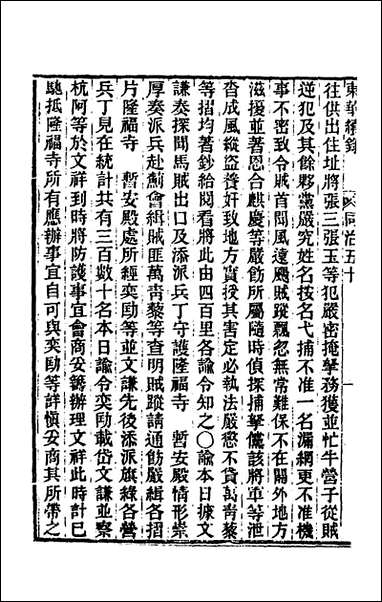 東華續錄 同治五十 一
往供出住址將張三張玉等犯嚴密掩拏務獲並忙牛營子從賊
逆犯及其餘夥黨嚴究姓名按名弋捕不准一名漏網更不准機
事不密致令賊首聞風遠颺賊蹤飄忽無常難保不在關外地方
滋擾並著恩合麒慶等嚴飭所屬隨時偵探捕拏儻該將軍等泄
沓成風縱盜養奸致地方實受其害定必執法嚴懲不貸萬青藜
等摺均著鈔給閱看將此由四百里各諭令知之○諭本日據文
謙奏探聞馬賊出口及添派兵丁守護隆福寺 暫安殿情形崇
厚奏派兵赴薊會緝賊匪萬青藜等查明賊蹤請通飭嚴緝各摺
片隆福寺 暫安殿處所經奕勛等並文謙先後添派旗綠各營
兵丁見在統計共有三百數十名本日諭令奕勛載岱文謙並察
杭阿等於文祥到時將防護事宜會商妥籌辦理文祥此時計已
馳抵隆福寺所有應辦事宜自可與奕勛等詳愼妥商其所帶之